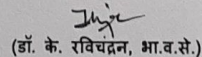 (डॉ. के. रविचंद्रन, भा.व.से.)